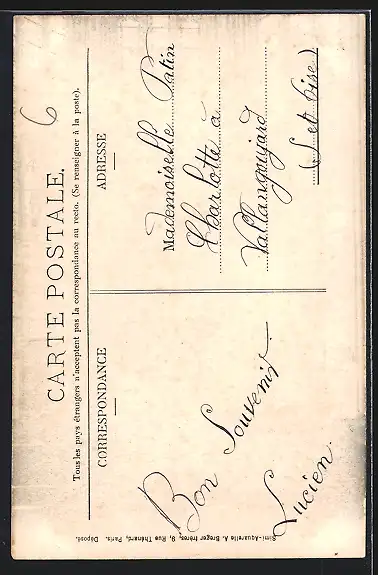 6
CARTE POSTALE.
Tous les pays étrangers n'acceptent pas la correspondance au recto. (Se renseigner à la poste).
CORRESPONDANCE
ADRESSE
Bon Souvenir
Lucien.
Mademoiselle Patin
Charlotte à
Vallangoujard
(Set Oise)
Simi-Aquarelle A. Breger frères, 9, Rue Thénard, Paris. Déposé.